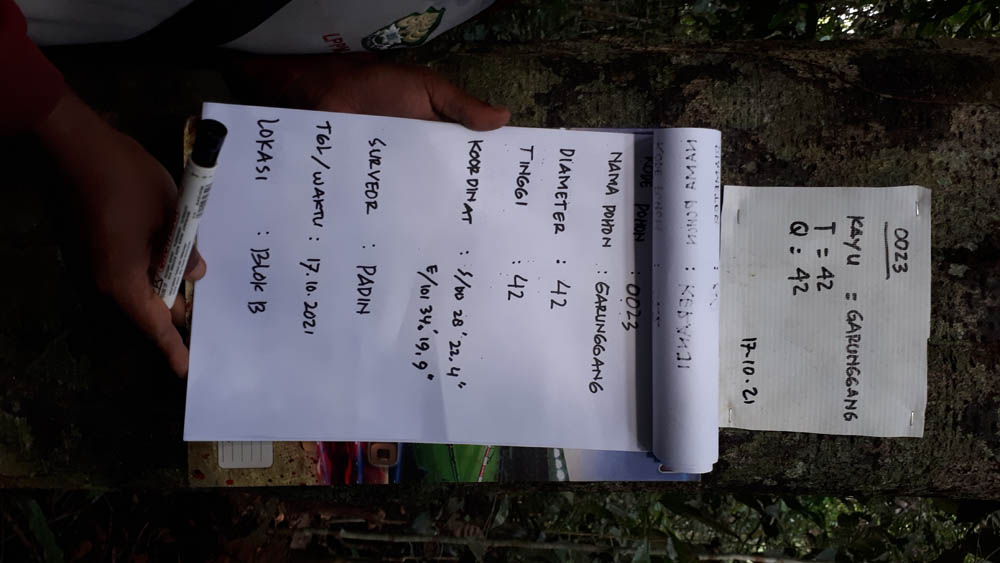 0023
KAYU = GARUNGGANG
T = 42
Q = 42
17-10.21
NAMA POHON : KERANJI
KODE POHON : 0023
NAMA POHON : GARUNGGANG
DIAMETER : 42
TINGGI : 42
KOORDINAT : S/00 28' 22.4"
E/101 34' 19.9"
SURVEOR : PADIN
TGL/WAKTU : 17.10.2021
LOKASI : BLOK B